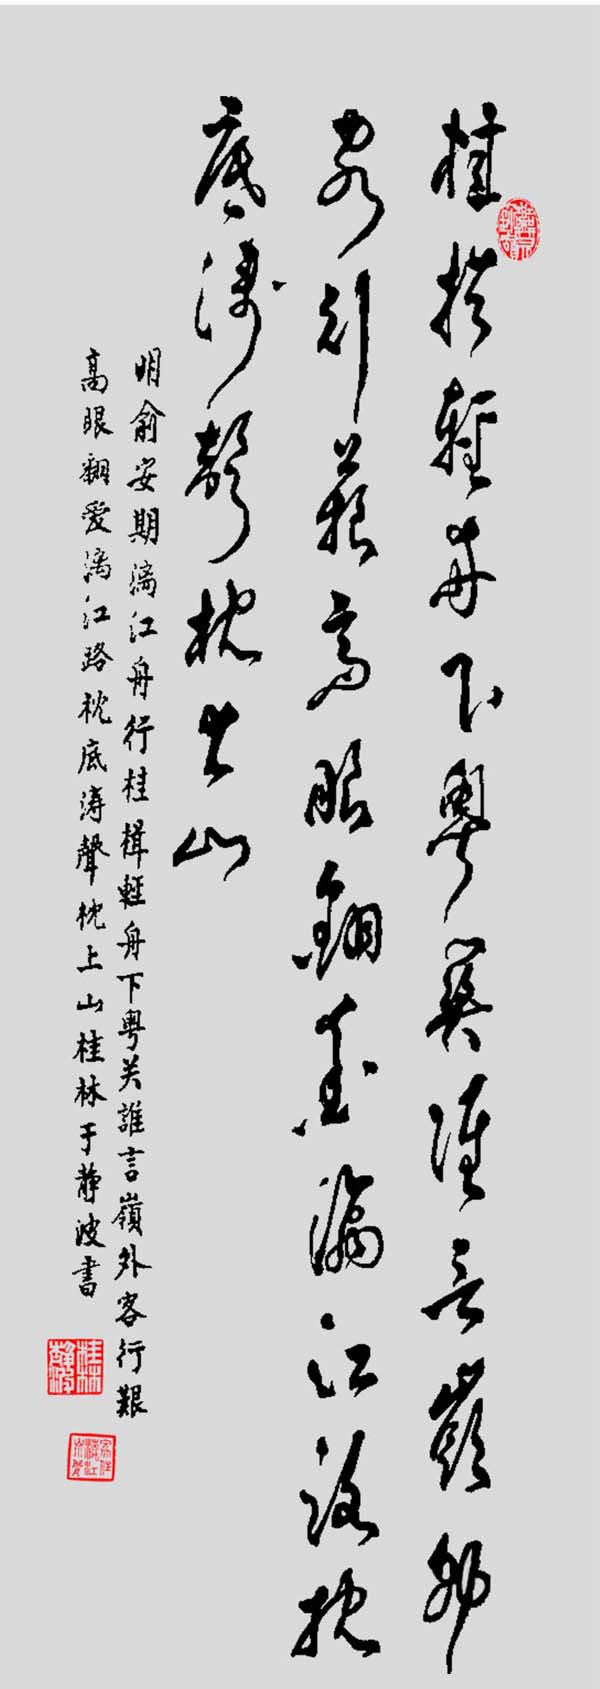 桂楫輕舟下粵關誰言嶺外
客行艱高眼翻愛漓江路枕
底濤聲枕上山
明俞安期漓江舟行桂楫輕舟下粤关誰言嶺外客行艱
高眼翻爱漓江路枕底涛聲枕上山桂林于静波書